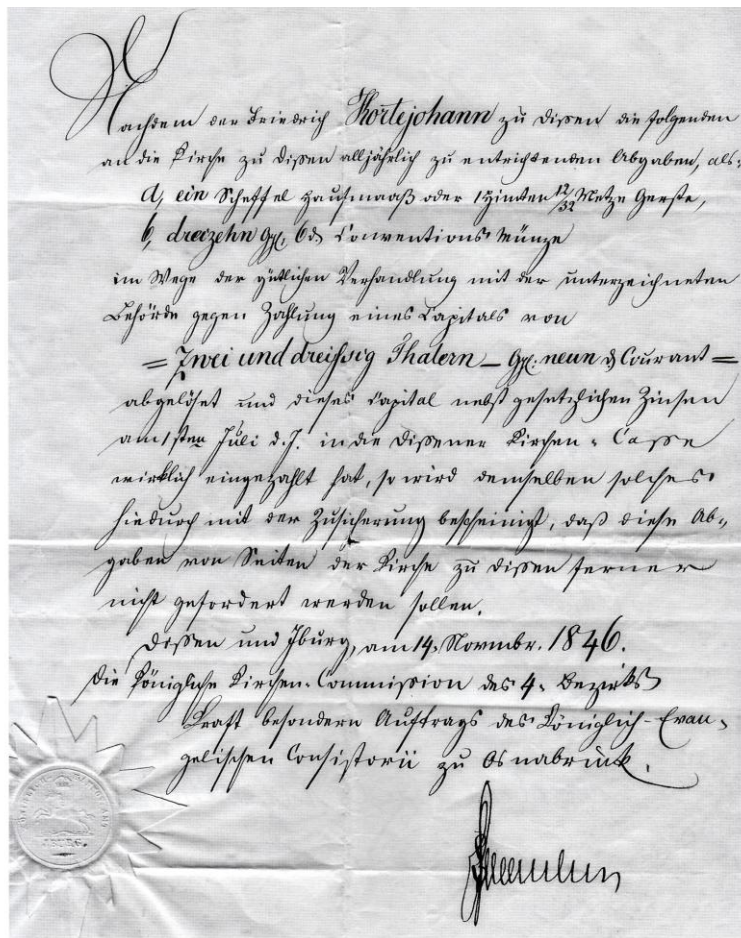 Nachdem der Friedrich Kortejohann zu Dißen die folgenden
an die Kirche zu Dißen alljährlich zu entrichtenden Abgaben, als:
a, ein Scheffel Hausmaaß oder 1 Himten 12/32 Metze Gerste,
b, dreizehn Ggl. 6 d Conventions Münze
im Wege der gütlichen Verhandlung mit der unterzeichneten
Behörde gegen Zahlung eines Capitals von
= Zwei und dreißig Thalern _ Ggl: neun d Courant =
abgelöset und dieses Capital nebst gesetzlichen Zinsen
am 1sten Juli d. J. in die Dißener Kirchen-Casse
wirklich eingezahlt hat, so wird demselben solches
hiedurch mit der Zusicherung bescheinigt, daß diese Ab-
gaben von Seiten der Kirche zu Dißen ferner
nicht gefordert werden sollen.
Dißen und Iburg, am 14. Novmbr. 1846.
Die Königliche Kirchen-Commißion des 4. Bezirks
Kraft besondern Auftrags des Königlich-Evan-
gelischen Consistorii zu Osnabrück.
IBURG.